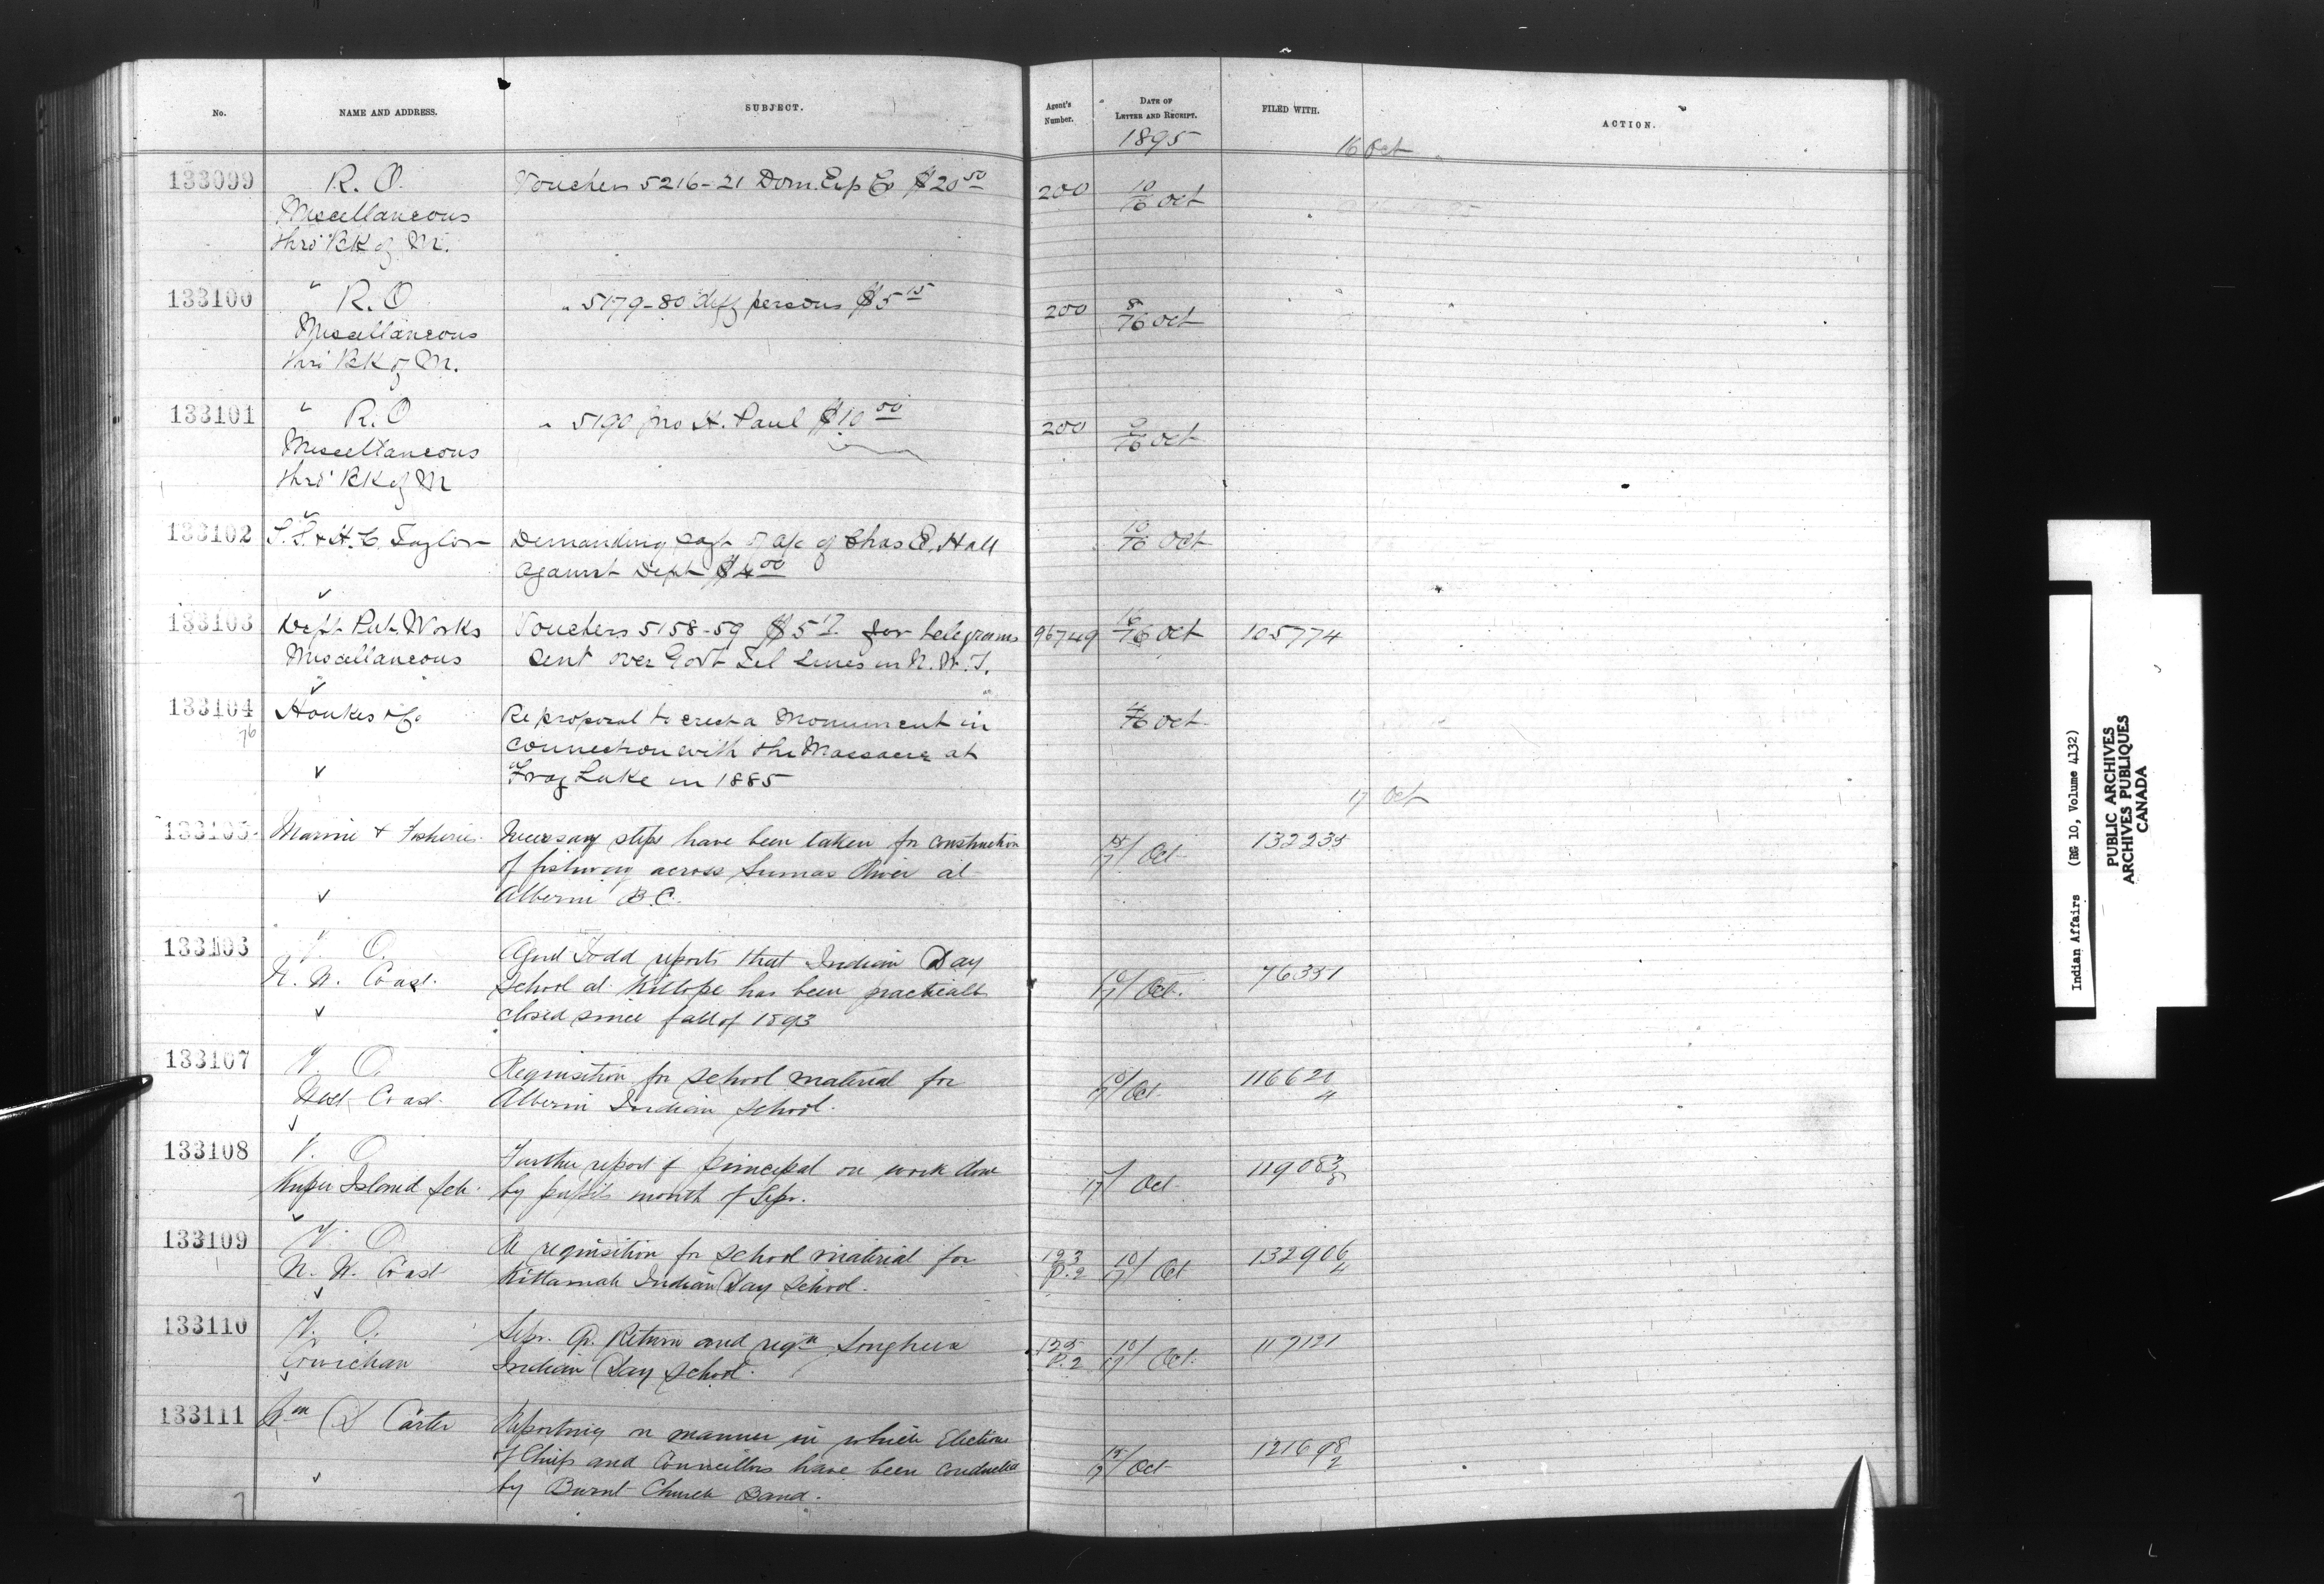 No. NAME AND ADDRESS. SUBJECT. Agent's Number. DATE OF LETTER AND RECEIPT. FILED WITH. ACTION.
1895 16 Oct
133099 R. O. Vouchers 5216-21 Dom. Exp Co $20 50 200 10/16 Oct
Miscellaneous
thro' BK of M.
133100 " R. O " 5179-80 diff persons $5 15 200 8/16 Oct
Miscellaneous
thro' BK of M.
133101 " R. O " 5190 Jno H. Paul $10 50 200 9/16 Oct
Miscellaneous
thro' BK of M
133102 & H. C. Taylor Demanding payt of a/c of Chas E. Hall 10/16 Oct
against Dept $4 00
133103 Dept Pub. Works Vouchers 5158-59 for telegrams 96749 16/16 Oct 105774
Miscellaneous sent over Govt Tel Lines in N. W. T.
133104 Houkes & Co Re proposal to erect a Monument in 4/16 Oct
76 connection with the Massacre at
Frog Lake in 1885
17 Oct
133105 Marine & Fisheries Necessary steps have been taken for construction 15/17 Oct 132235
of fishway across Sumas River at
Alberni B. C.
133106 V. O. Agent Todd reports that Indian Day
N. W. Coast School at Kitlope has been practically 10/17 Oct. 76331
closed since fall of 1893
133107 V. O. Requisition for school material for 10/17 Oct 116621
West Coast Alberni Indian School. 4
133108 V. O. Further report of principal on work done 119083
Kuper Island Sch. by pupils month of Sepr. 17 Oct
133109 V. O. Re requisition for school material for 123 10/17 Oct 132906
N. W. Coast Kittamah Indian Day School. P. 2 4
133110 V. O. Sepr. Qr. Return and reqn Songhees 125 10/17 Oct 117121
Cowichan Indian Day School. P. 2
133111 Wm D Carter Reporting on manner in which Elections 15/17 Oct 121698
of Chiefs and Councillors have been conducted 2
by Burnt Church Band.
Indian Affairs (RG 10, Volume 4132)
PUBLIC ARCHIVES
ARCHIVES PUBLIQUES
CANADA